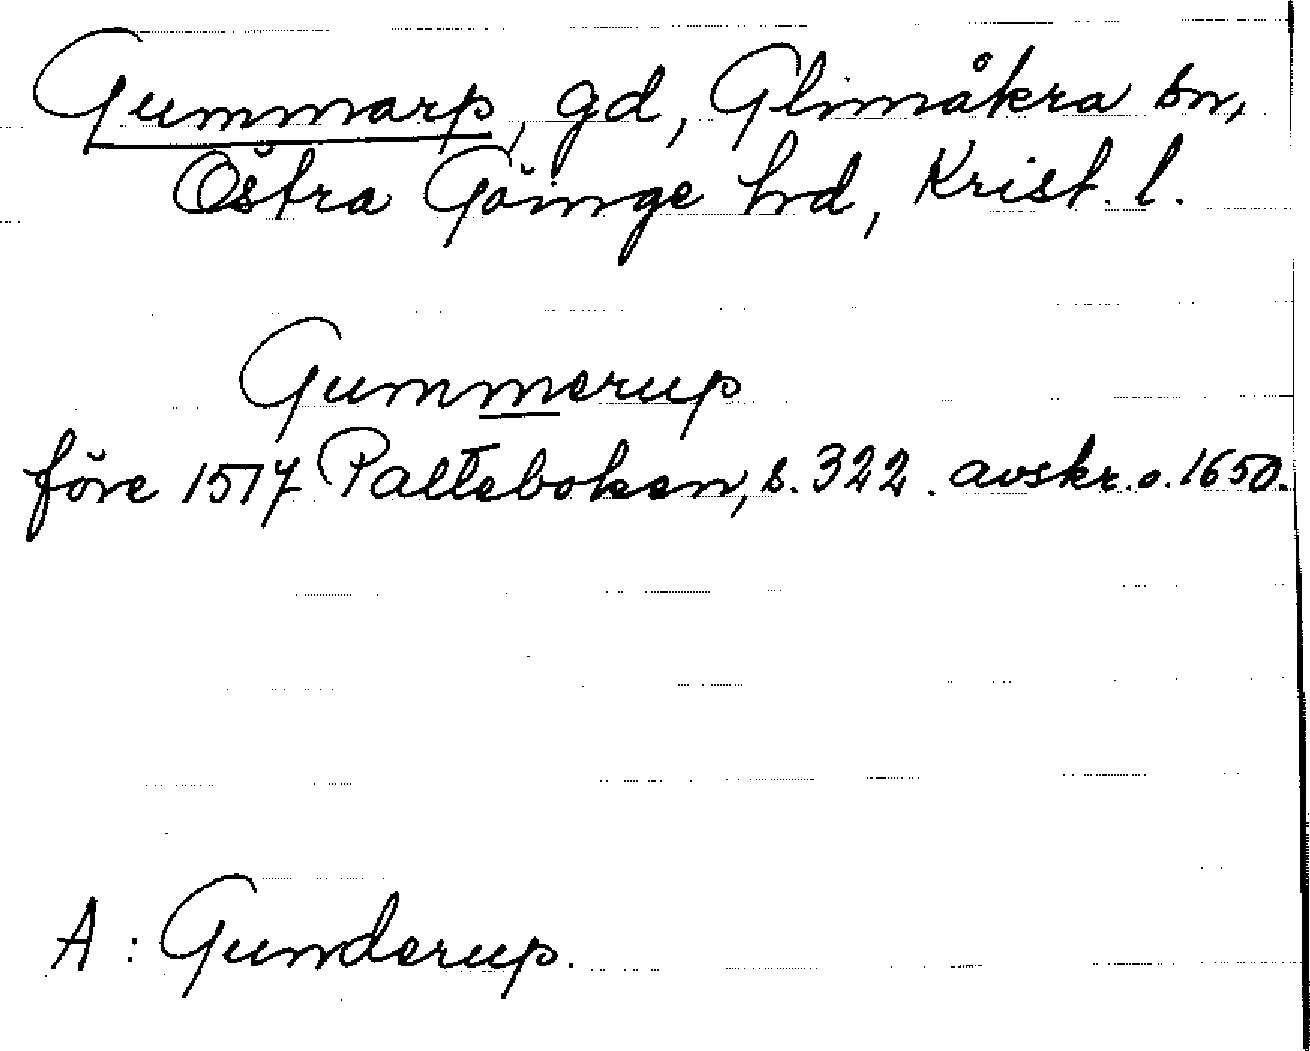 Gummarp, gd, Glimåkra sn,
Östra Göinge hd, Krist. l.
Gummerup
före 1517 Palteboken, s. 322. avskr. o. 1650.
A: Gunderup.